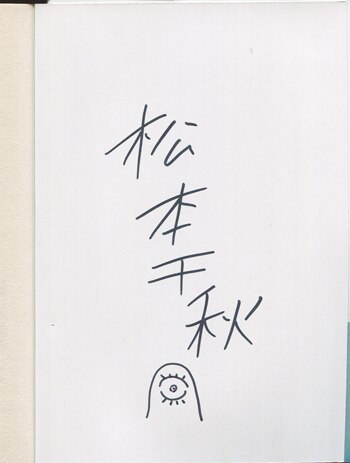 松本千秋